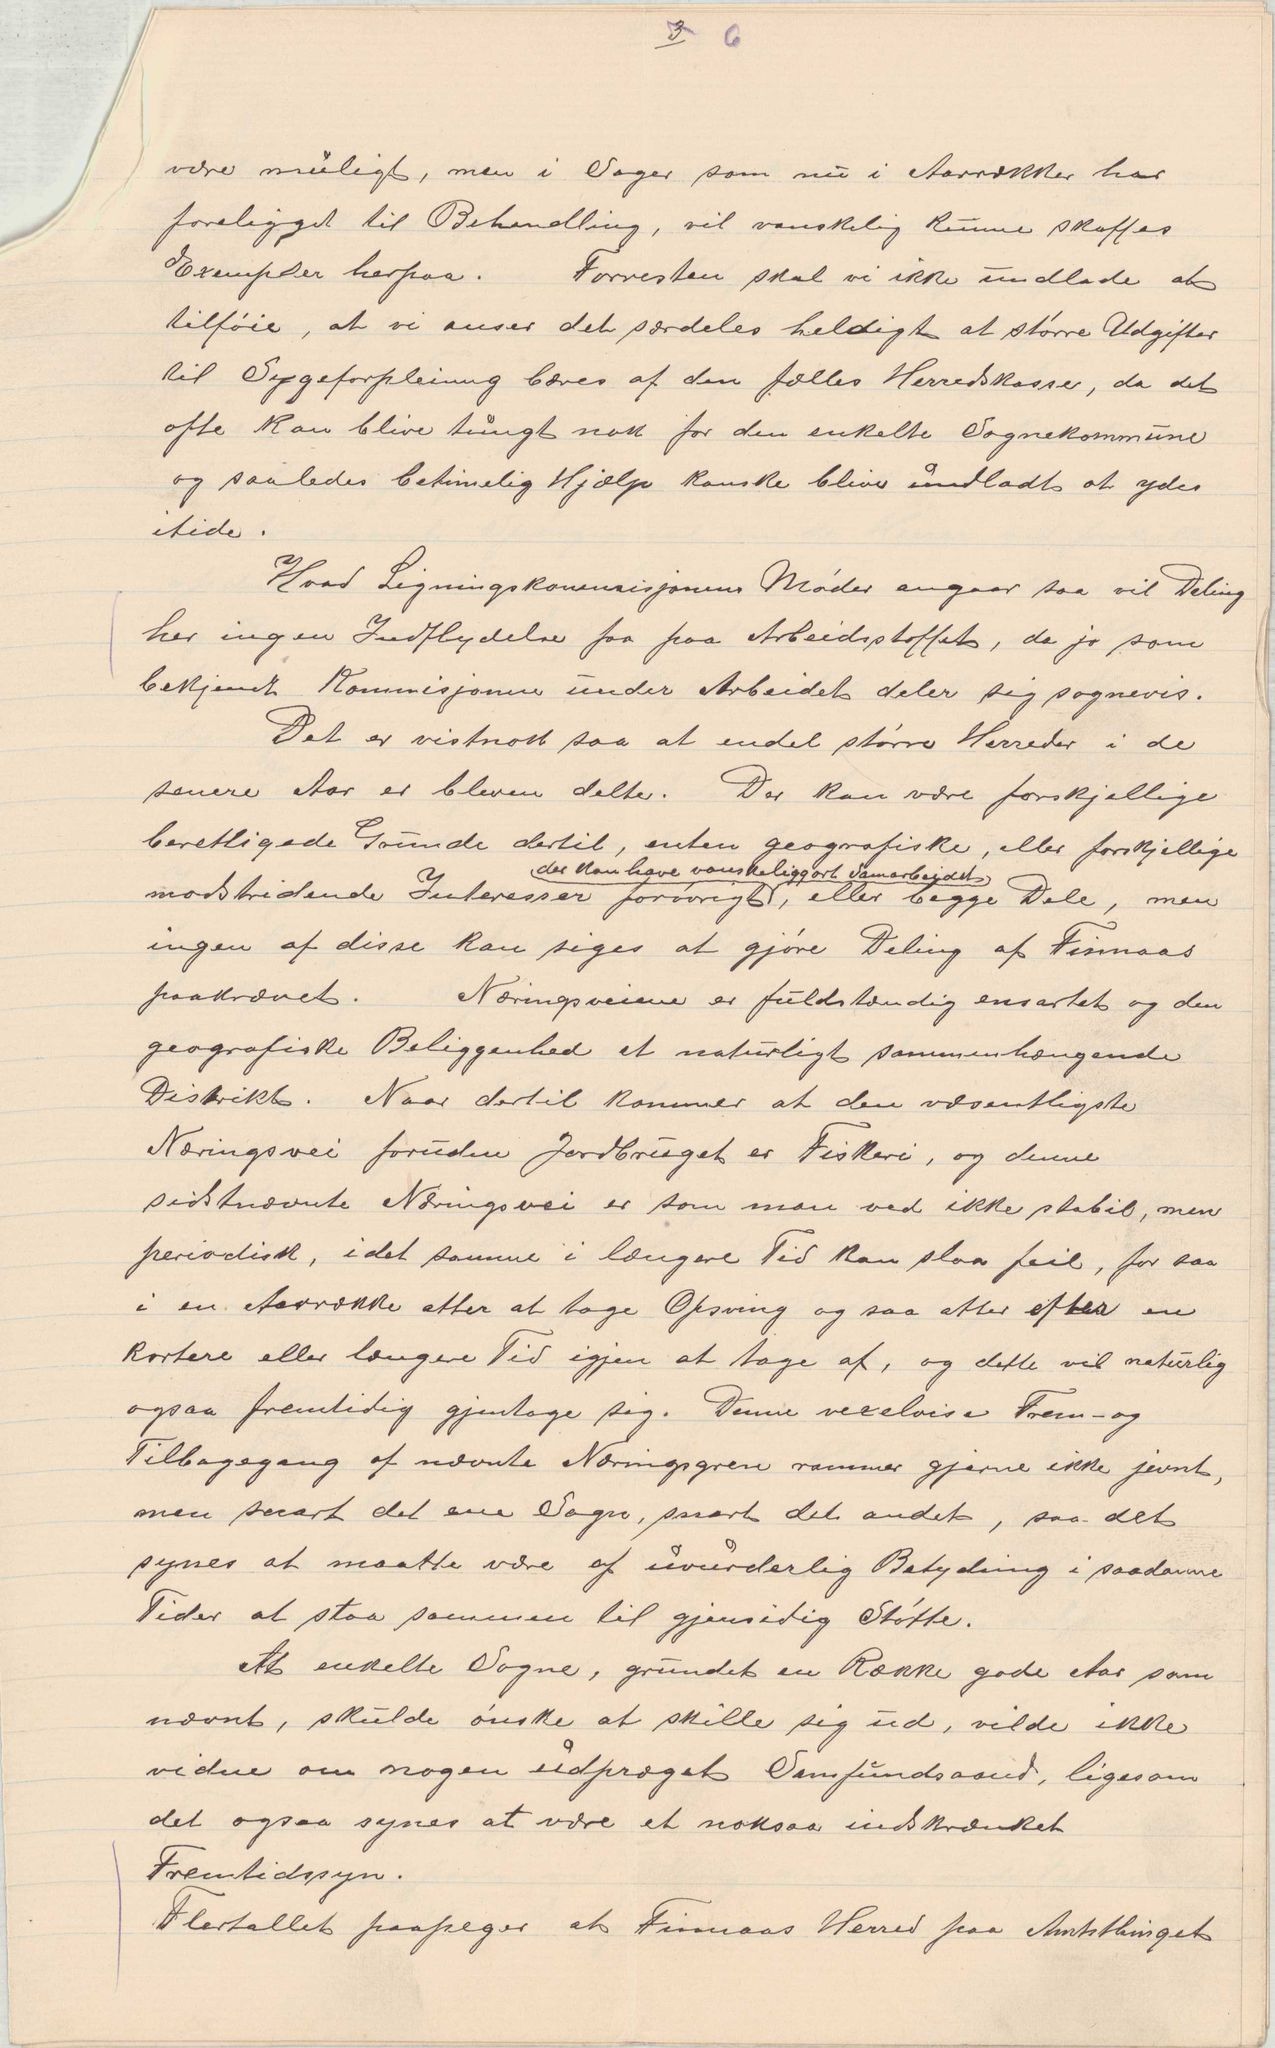 3 6
være muligt, men i Sager som nu i Aarrækker har
foreligget til Behandling, vil vanskelig kunne skaffes
Exempler herpaa. Forresten skal vi ikke undlade at
tilføie, at vi anser det særdeles heldigt at større Udgifter
til Sygeforpleining bæres af den fælles Herredskasse, da det
ofte kan blive tungt nok for den enkelte Sognekommune
og saaledes betimelig Hjælp kanske bliver undladt at ydes
itide.
Hvad Ligningskommisjonens Møder angaar saa vil Deling
her ingen Indflydelse faa paa Arbeidsstoffet, da jo som
bekjendt Kommisjonen under Arbeidet deler sig sognevis.
Det er vistnok saa at endel større Herreder i de
senere Aar er bleven delte. Der kan være forskjellige
berettigede Grunde dertil, enten geografiske, eller forskjellige
der kan have vanskeliggjort Samarbeidet
modstridende Interesser forøvrigt, eller begge Dele, men
ingen af disse kan siges at gjøre Deling af Finnaas
paakrævet. Næringsveiene er fuldstændig ensartet og den
geografiske Beliggenhed et naturligt sammenhængende
Distrikt. Naar dertil kommer at den væsentligste
Næringsvei foruden Jordbruget er Fiskeri, og denne
sidstnævnte Næringsvei er som man ved ikke stabil, men
periodisk, idet samme i længere Tid kan slaa feil, for saa
i en Aarrække atter at tage Opsving og saa atter efter en
kortere eller længere Tid igjen at tage af, og dette vil naturlig
ogsaa fremtidig gjentage sig. Denne vexelvise Frem- og
Tilbagegang af nævnte Næringsgren rammer gjerne ikke jevnt,
men snart det ene Sogn, snart det andet, saa det
synes at maatte være af uvurderlig Betydning i saadanne
Tider at staa sammen til gjensidig Støtte.
At enkelte Sogne, grundet en Række gode Aar som
nævnt, skulde ønske at skille sig ud, vilde ikke
vidne om nogen udpræget Samfundsaand, ligesom
det ogsaa synes at være et noksaa indskrænket
Fremtidssyn.
Flertallet paapeger at Finnaas Herred paa Amtsthinget